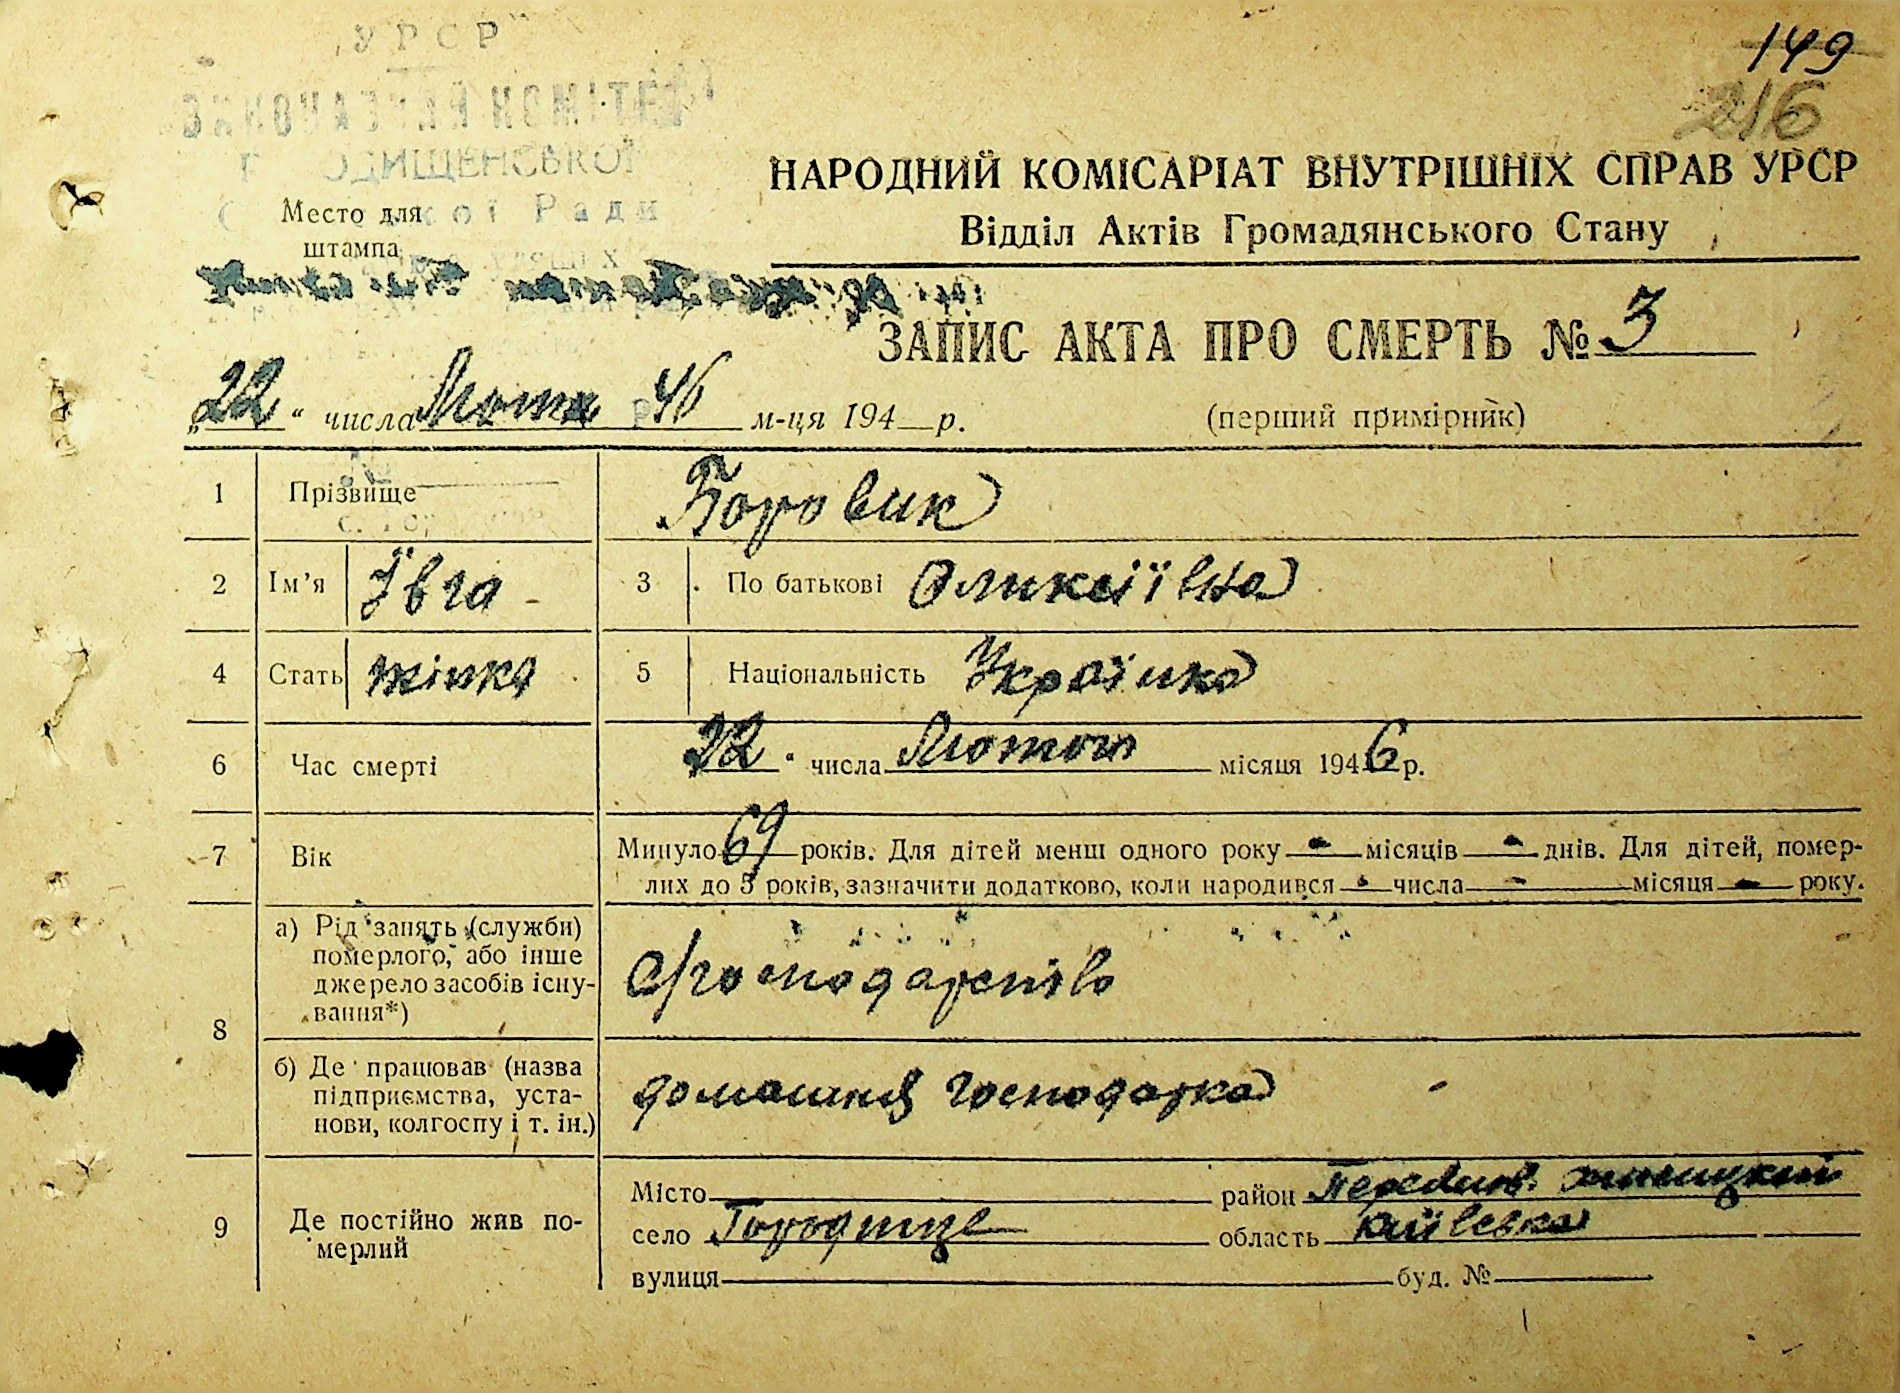 УРСР
149
216
КОМІТЕТ
ОДИЩЕНСЬКОЇ
Ради
НАРОДНИЙ КОМІСАРІАТ ВНУТРІШНІХ СПРАВ УРСР
Место для
штампа
Відділ Актів Громадянського Стану
ЗАПИС АКТА ПРО СМЕРТЬ № 3
„22“ числа Лютня 46 м-ця 194 р.
(перший примірник)
1 Прізвище Боровик
2 Ім’я Ївга 3 По батькові Оликсіївна
4 Стать жінка 5 Національність Українка
6 Час смерті 22 “ числа Лютого місяця 1946 р.
7 Вік Минуло 69 років. Для дітей менш одного року - місяців - днів. Для дітей, помер-
лих до 5 років, зазначити додатково, коли народився - числа - місяця - року.
8 а) Рід занять (служби)
померлого, або інше
джерело засобів існу-
вання*)
господарство
б) Де працював (назва
підприємства, уста-
нови, колгоспу і т. ін.)
домашня господарка
9 Де постійно жив по-
мерлий
Місто район Переяслов.
село Городище область Київська
вулиця буд. №